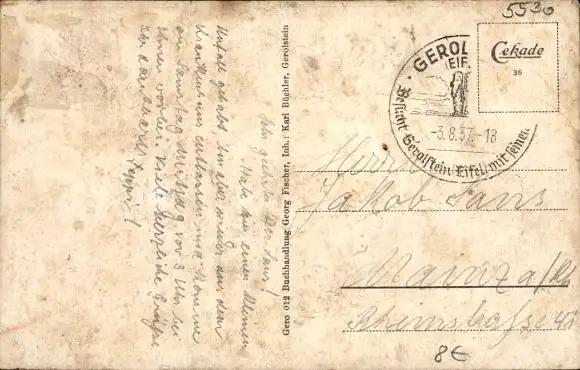 Sehr geehrter Herr Sans!
Habe hier einen kleinen
Unfall gehabt bin aber wieder aus dem
Krankenhaus entlassen und komme
am Samstag Mittag vor 3 Uhr bei
Ihnen vorbei. Viele herzliche Grüsse
Gero 012 Buchhandlung Georg Fischer, Inh.: Karl Büchler, Gerolstein
5530
Cekade
36
GEROL
(EIF.
-3.8.37.-18
Besucht Gerolstein-Eifel mit seinen
Herrn
Jakob Sans
Mainz a/Rh
Rheinstraße 45
8€